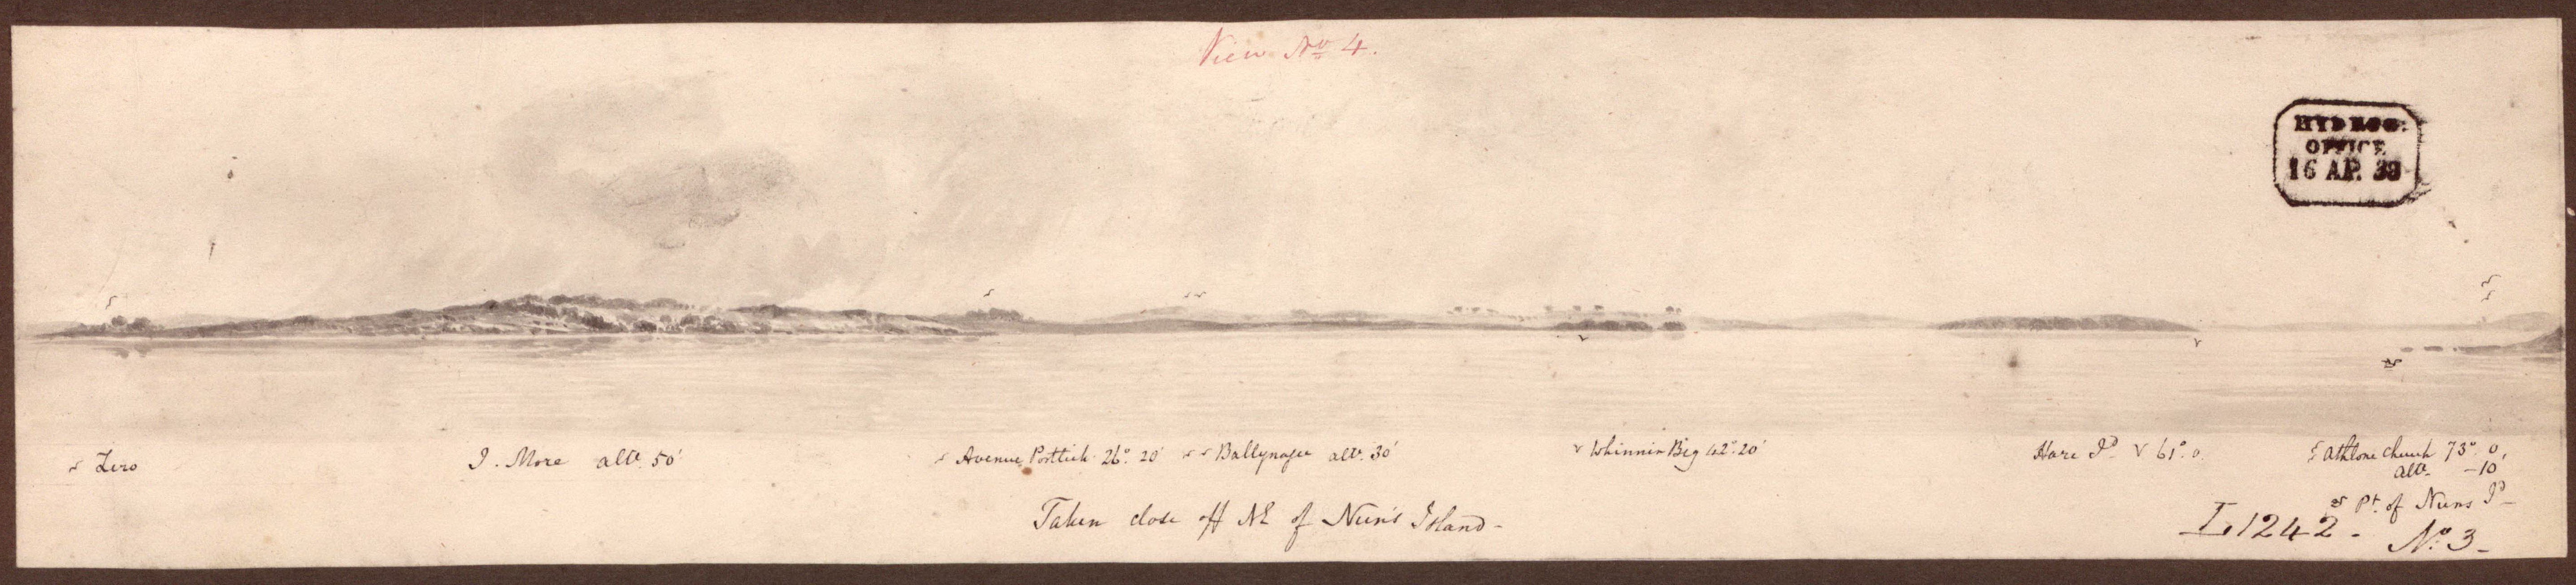 View No 4.
HYDROG:
OFFICE
16 AP. 39
Zero
I. More altde. 50'
Avenue Portlick 26°. 20' Ballynagee altde. 30'
Whinnin Big 42°. 20'
Hare Id. 61°. 0.
Athlone church 73°. 0,
altde. -10
Pt. of Nuns Id
Taken close off NE of Nun's Island-
L1242-
No 3-